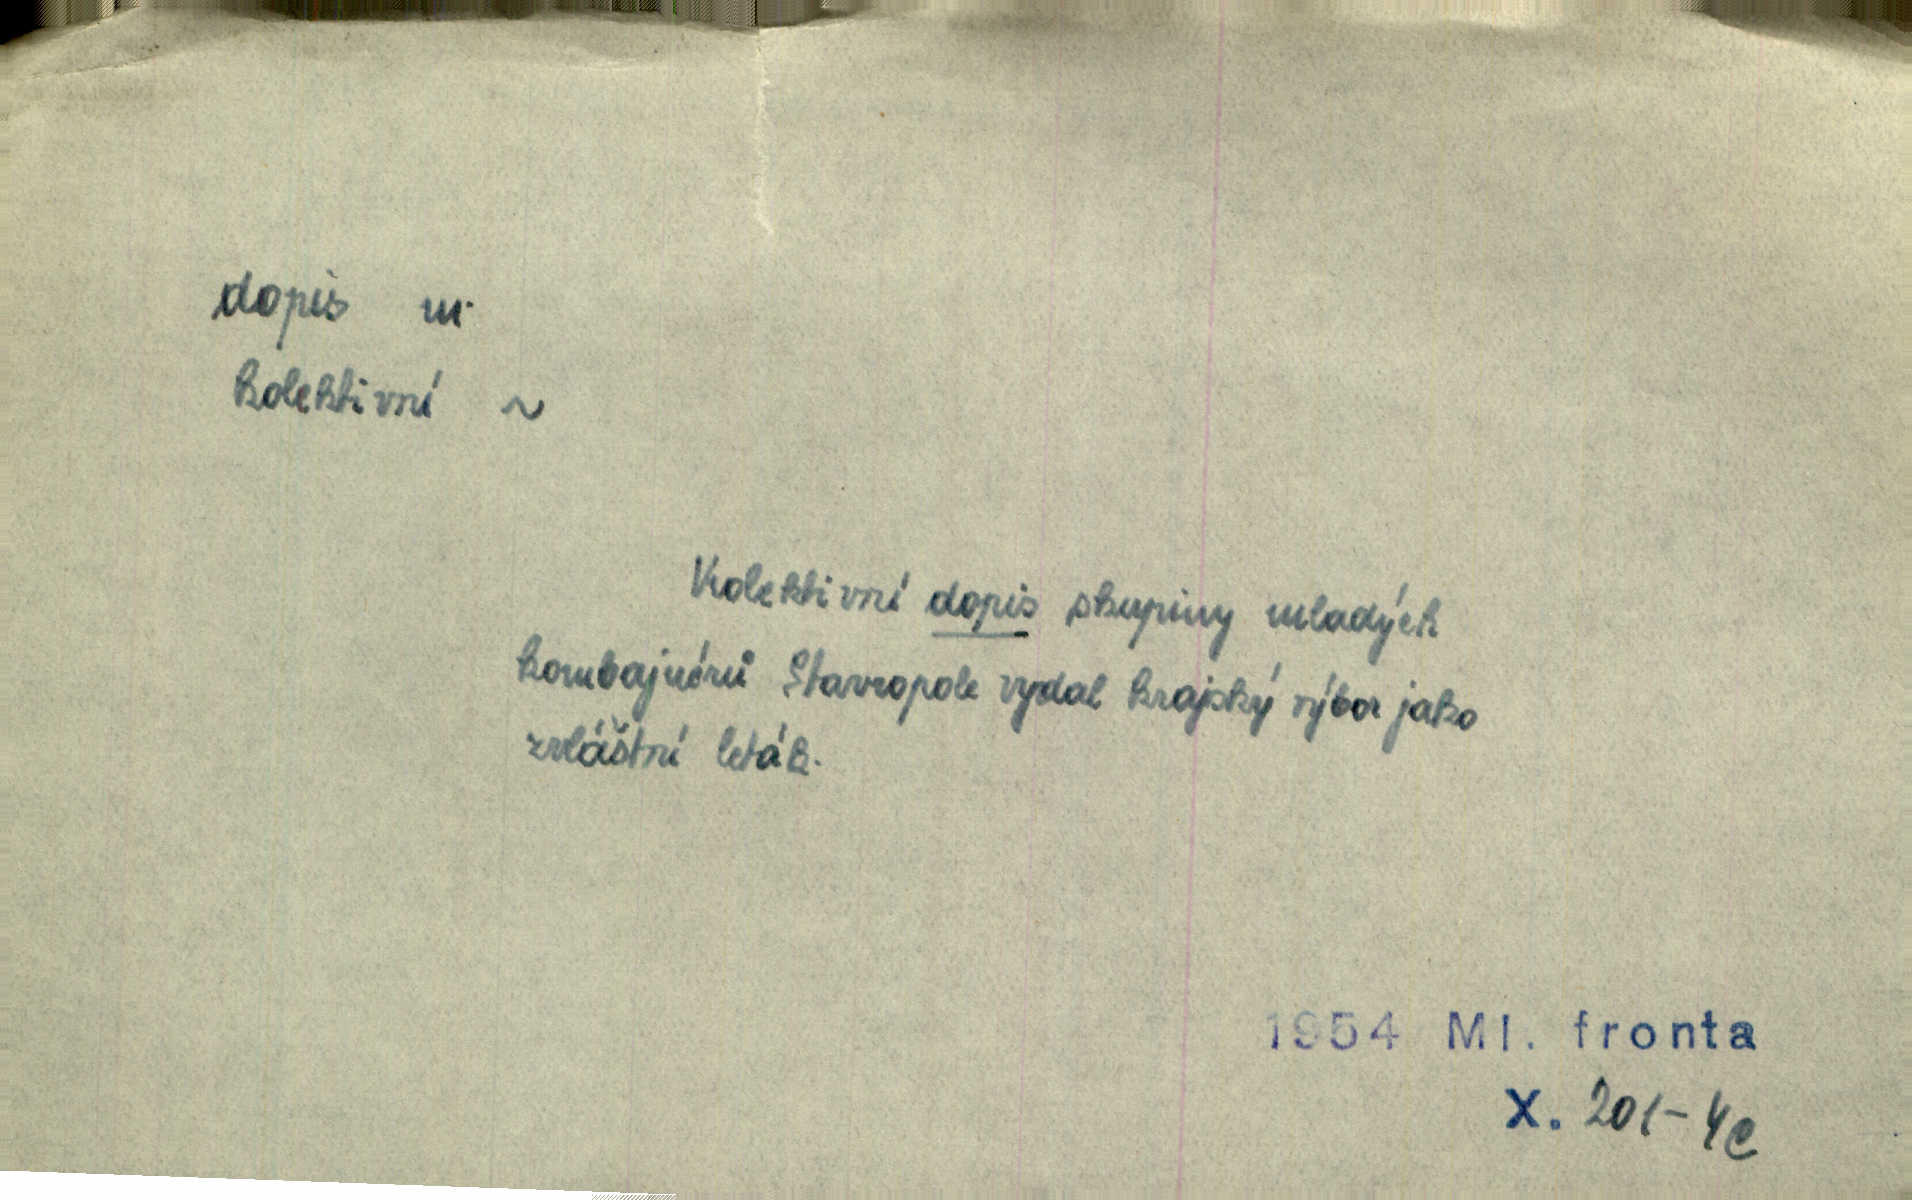 dopis m.
kolektivní ~
Kolektivní dopis skupiny mladých
kombajnérů Stavropole vydal krajský výbor jako
zvláštní leták.
1954 Ml. fronta
X. 201-4c